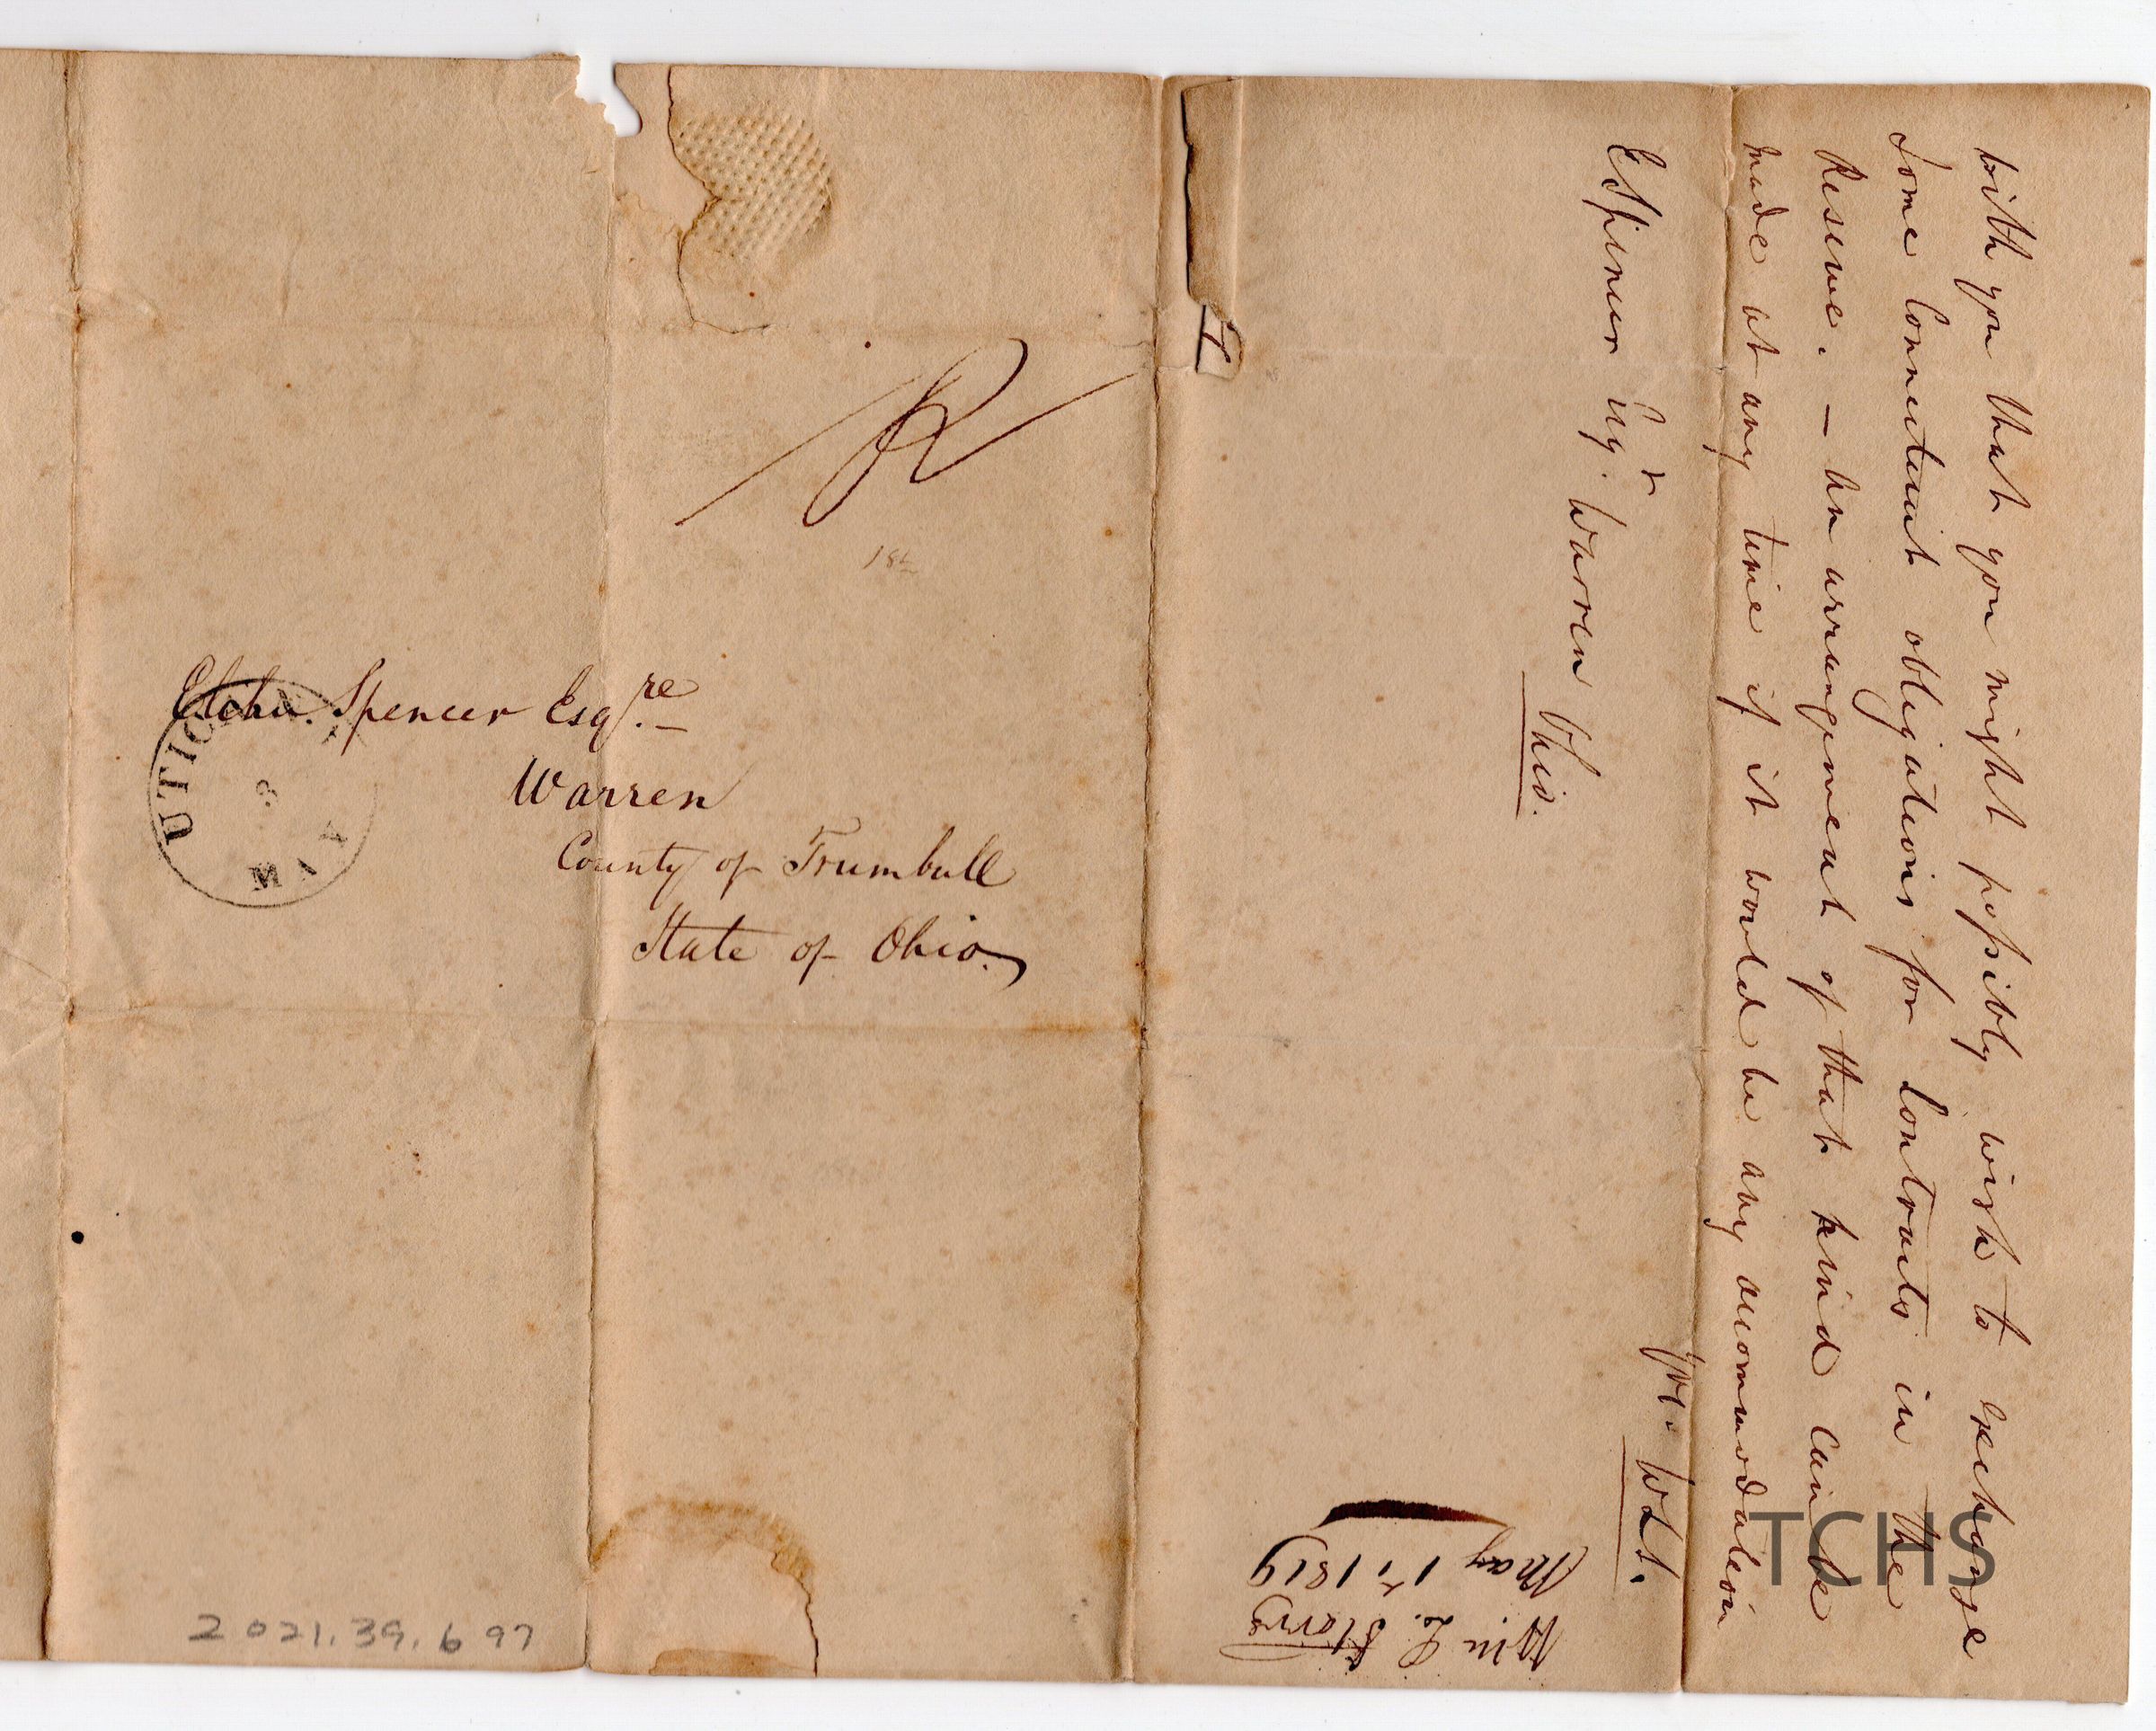 with you that you might possibly wish to exchange
some Connecticut obligations for Contracts in the
Reserve. — An arrangement of that kind can be
made at any time if it would be any accommodation
Yrs. W L S.
E Spencer Esqr. Warren Ohio.
Elihu. Spencer Esqre.
Warren
County of Trumbull
State of Ohio.
UTICA
MAY
3
Wm L. Storrs
May 1st, 1819
2021.39.697
TCHS